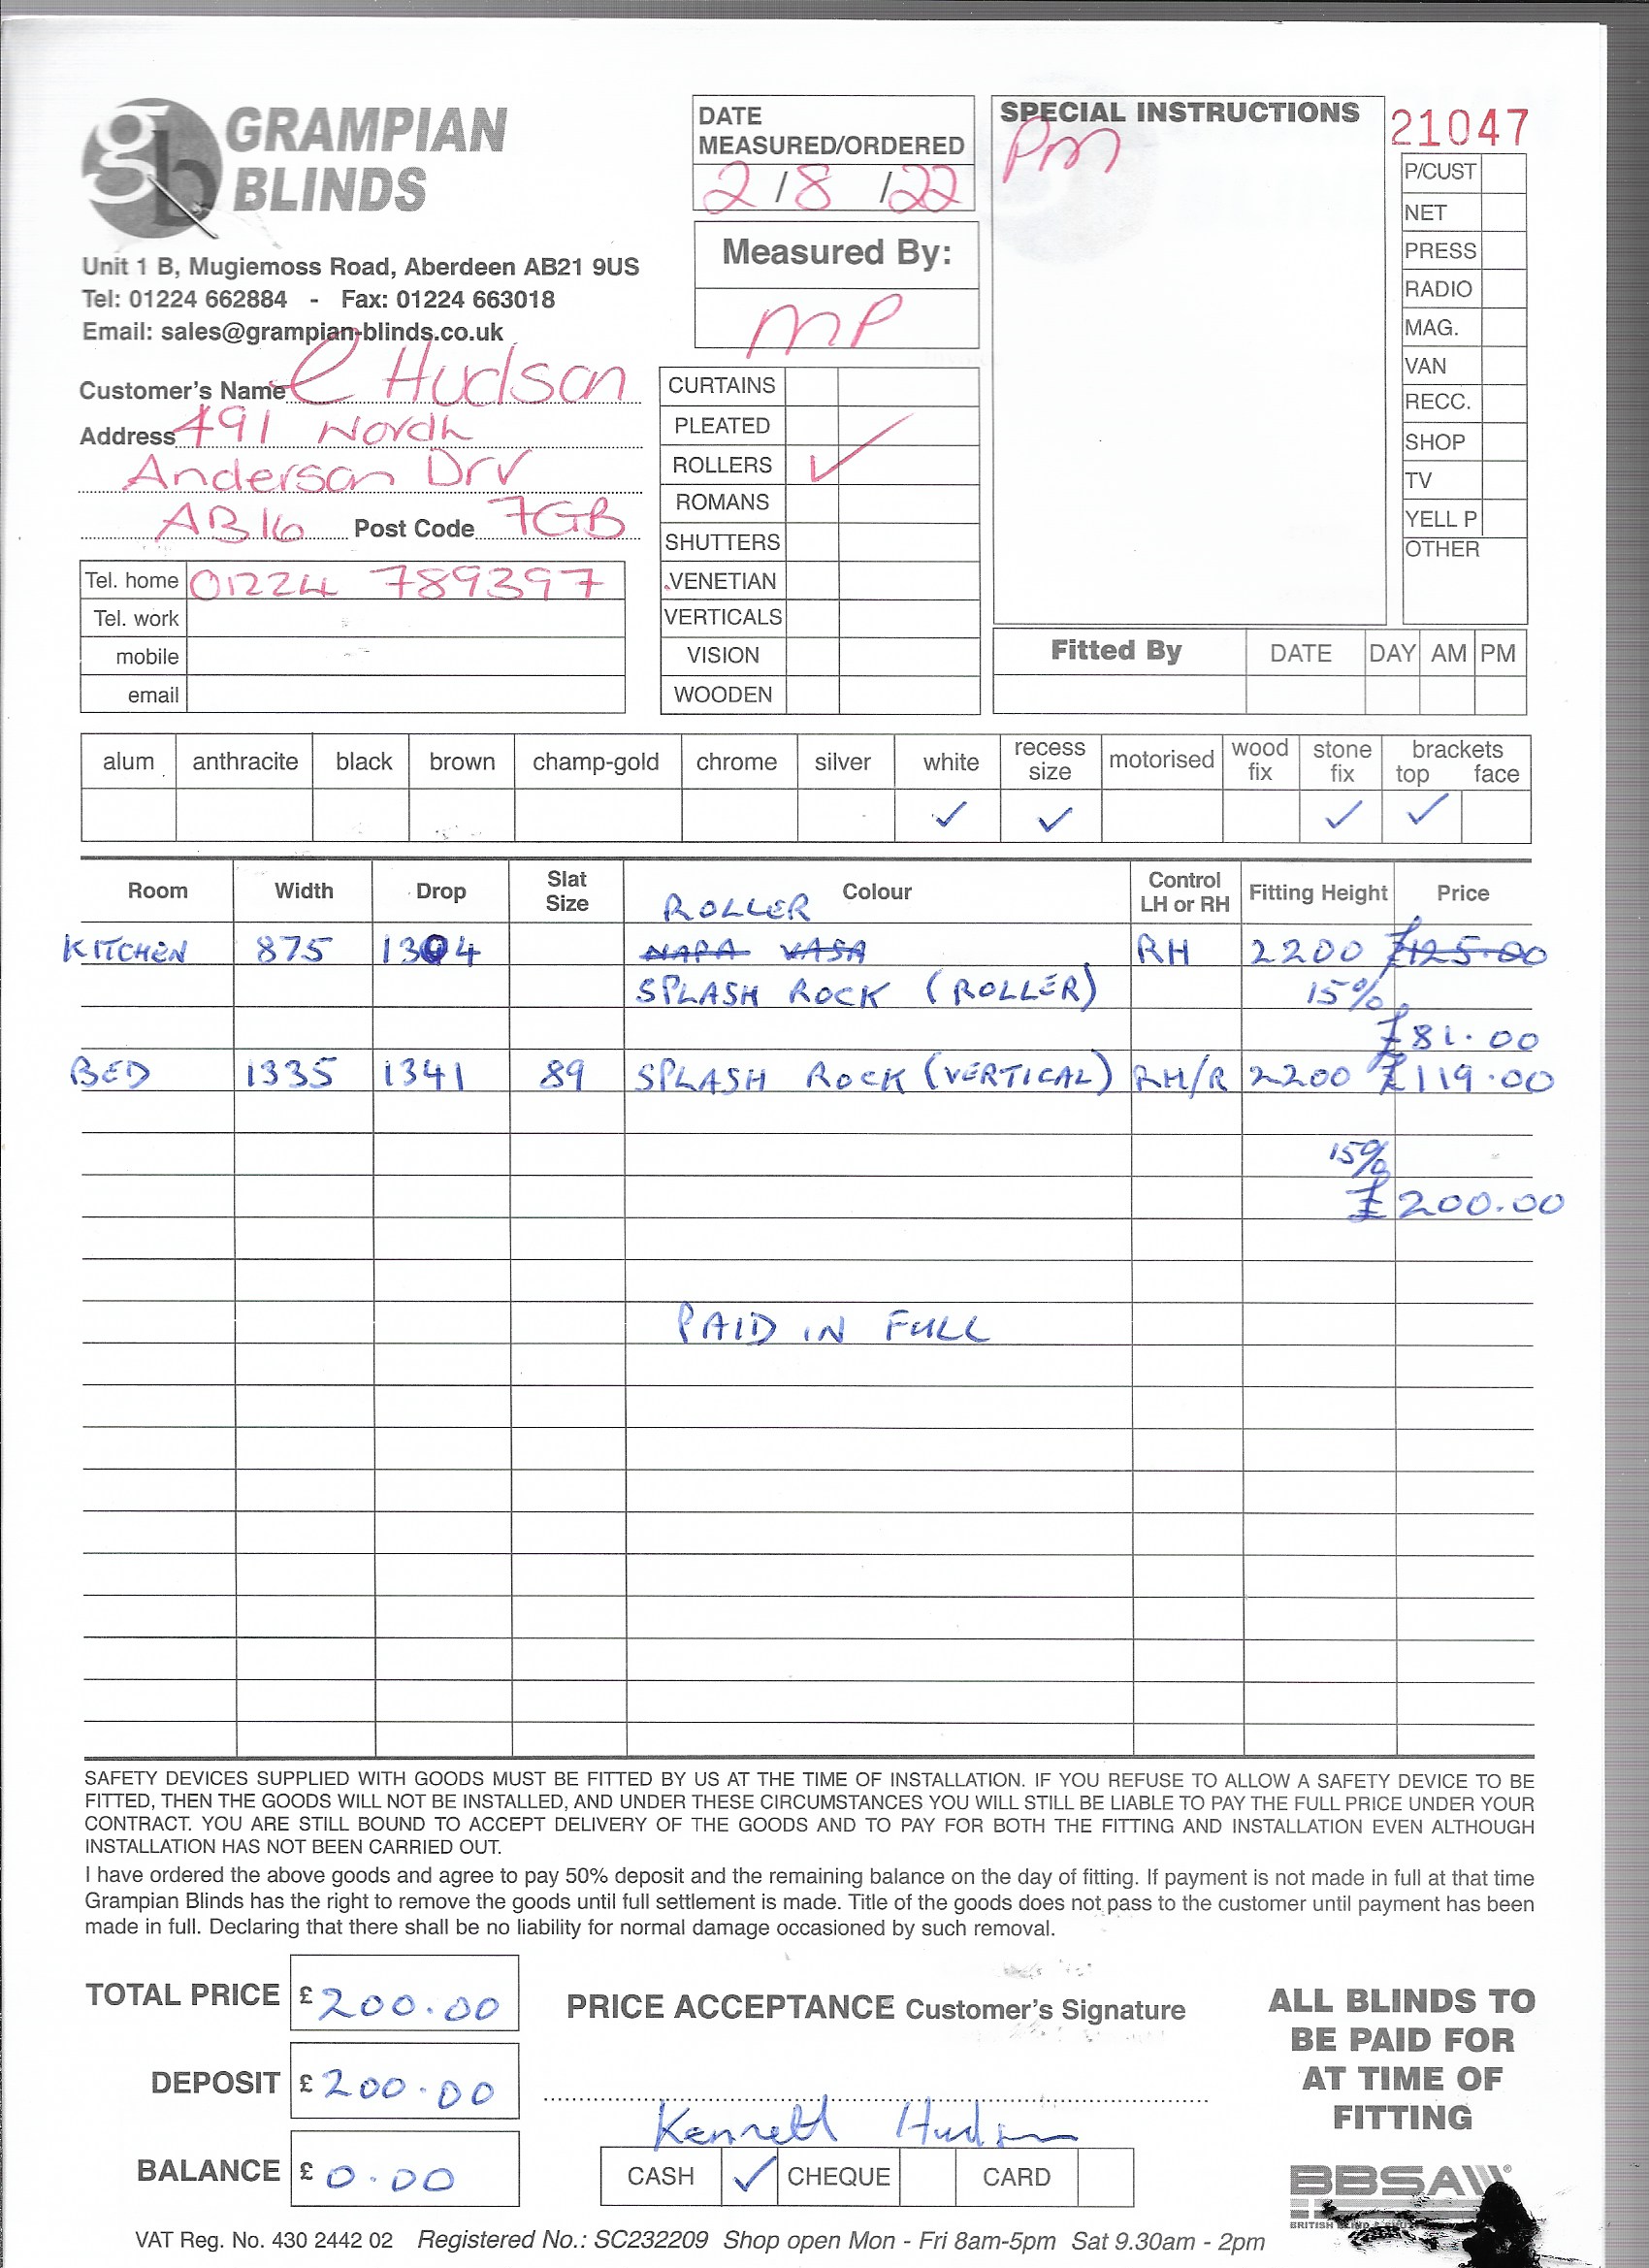 GRAMPIAN
BLINDS
Unit 1 B, Mugiemoss Road, Aberdeen AB21 9US
Tel: 01224 662884 - Fax: 01224 663018
Email: sales@grampian-blinds.co.uk
Customer's Name C Hudson
Address 491 North
Anderson Drv
AB16 Post Code 7GB
Tel. home 01224 789397
Tel. work
mobile
email
DATE
MEASURED/ORDERED
2/8/22
Measured By:
MP
CURTAINS
PLEATED
ROLLERS ✓
ROMANS
SHUTTERS
VENETIAN
VERTICALS
VISION
WOODEN
SPECIAL INSTRUCTIONS
Pm
21047
P/CUST
NET
PRESS
RADIO
MAG.
VAN
RECC.
SHOP
TV
YELL P
OTHER
Fitted By DATE DAY AM PM
alum anthracite black brown champ-gold chrome silver white recess size motorised wood fix stone fix brackets top face
✓ ✓ ✓ ✓
Room Width Drop Slat Size Colour Control LH or RH Fitting Height Price
ROLLER
KITCHEN 875 1304 NAPA VASA RH 2200 £125.00
SPLASH ROCK (ROLLER) 15%
£81.00
BED 1335 1341 89 SPLASH ROCK (VERTICAL) RH/R 2200 £119.00
15%
£200.00
PAID IN FULL
SAFETY DEVICES SUPPLIED WITH GOODS MUST BE FITTED BY US AT THE TIME OF INSTALLATION. IF YOU REFUSE TO ALLOW A SAFETY DEVICE TO BE
FITTED, THEN THE GOODS WILL NOT BE INSTALLED, AND UNDER THESE CIRCUMSTANCES YOU WILL STILL BE LIABLE TO PAY THE FULL PRICE UNDER YOUR
CONTRACT. YOU ARE STILL BOUND TO ACCEPT DELIVERY OF THE GOODS AND TO PAY FOR BOTH THE FITTING AND INSTALLATION EVEN ALTHOUGH
INSTALLATION HAS NOT BEEN CARRIED OUT.
I have ordered the above goods and agree to pay 50% deposit and the remaining balance on the day of fitting. If payment is not made in full at that time
Grampian Blinds has the right to remove the goods until full settlement is made. Title of the goods does not pass to the customer until payment has been
made in full. Declaring that there shall be no liability for normal damage occasioned by such removal.
TOTAL PRICE £200.00
DEPOSIT £200.00
BALANCE £0.00
PRICE ACCEPTANCE Customer's Signature
Kenneth Hudson
CASH ✓ CHEQUE CARD
ALL BLINDS TO
BE PAID FOR
AT TIME OF
FITTING
BBSA
VAT Reg. No. 430 2442 02 Registered No.: SC232209 Shop open Mon - Fri 8am-5pm Sat 9.30am - 2pm